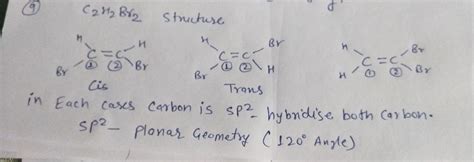 ⑨ C2H2Br2 Structure
H H H Br H Br
C=C C=C C=C
① ② ① ② ① ②
Br Br Br H H Br
Cis Trans
in Each cases Carbon is SP2- hybridise both Carbon.
SP2- Planar Geometry (120° Angle)